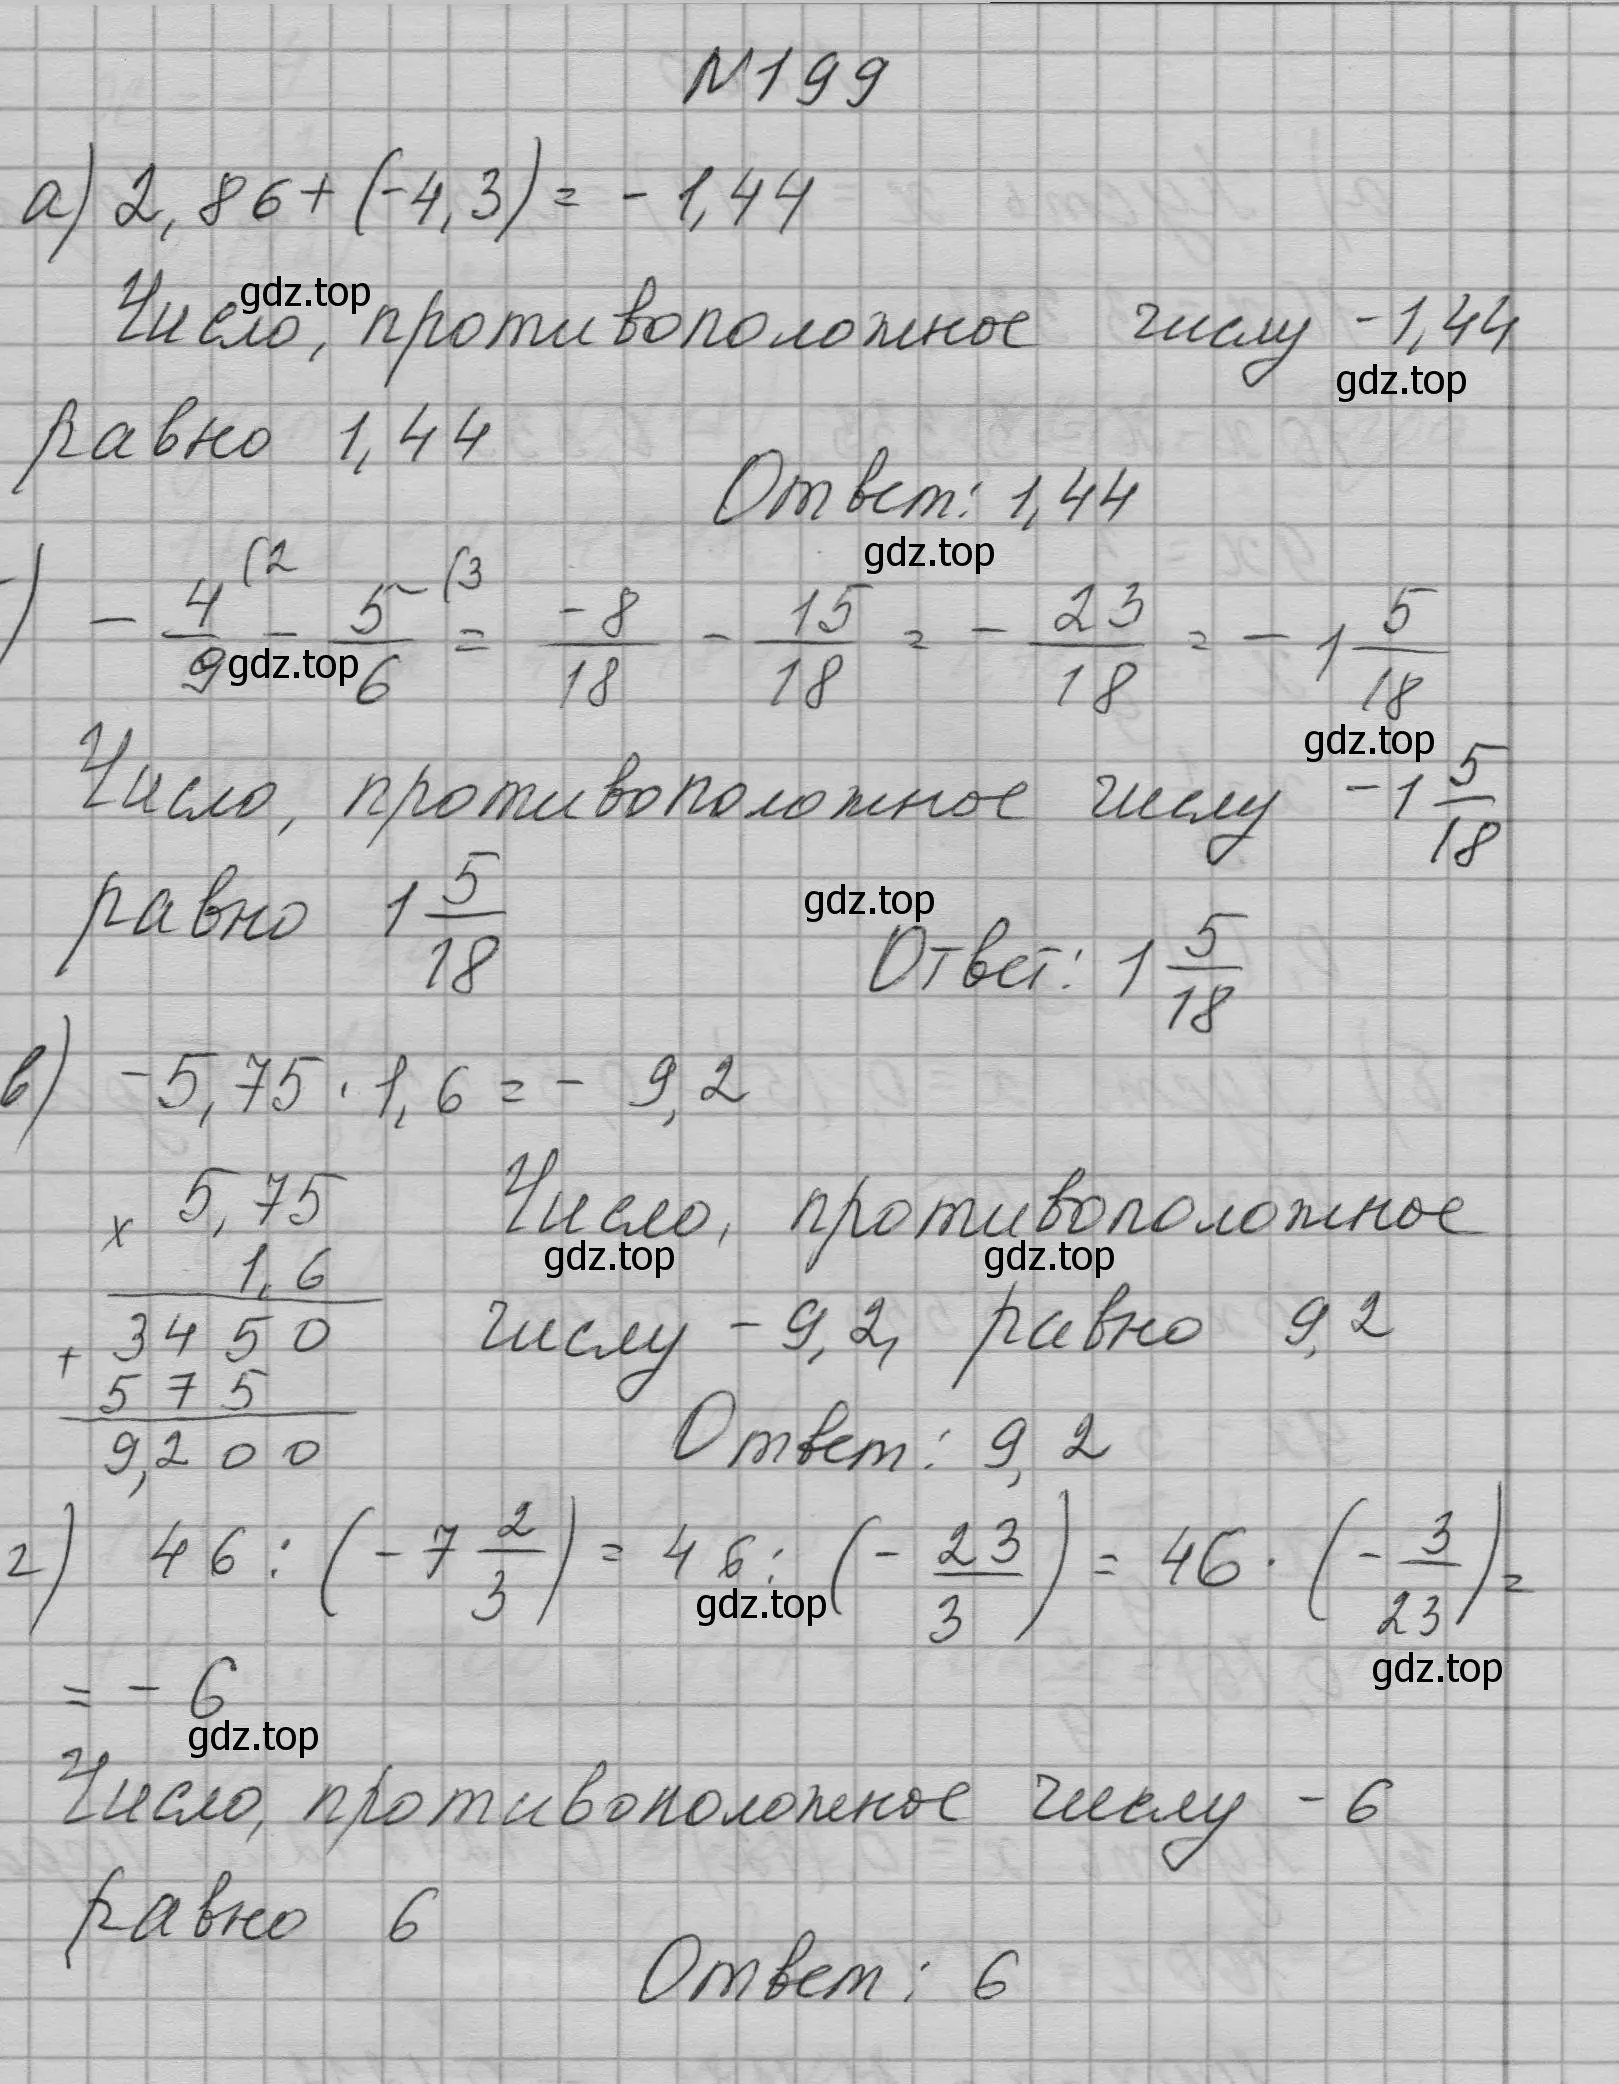 №199
а) 2,86+(-4,3)=-1,44
gdz.top
Число, противоположное числу -1,44
gdz.top
равно 1,44
Ответ: 1,44
gdz.top
) -4/9 (2 - 5/6 (3 = -8/18 - 15/18 = -23/18 = -1 5/18
gdz.top
gdz.top
Число, противоположное числу -1 5/18
равно 1 5/18
gdz.top
Ответ: 1 5/18
в) -5,75 · 1,6 = - 9,2
x 5,75
1,6
+ 3450
575
9,200
Число, противоположное
gdz.top gdz.top
числу -9,2, равно 9,2
Ответ: 9,2
г) 46 : (-7 2/3) = 46 : (-23/3) = 46 · (-3/23) =
gdz.top
gdz.top
= - 6
gdz.top
Число, противоположное числу -6
равно 6
Ответ: 6